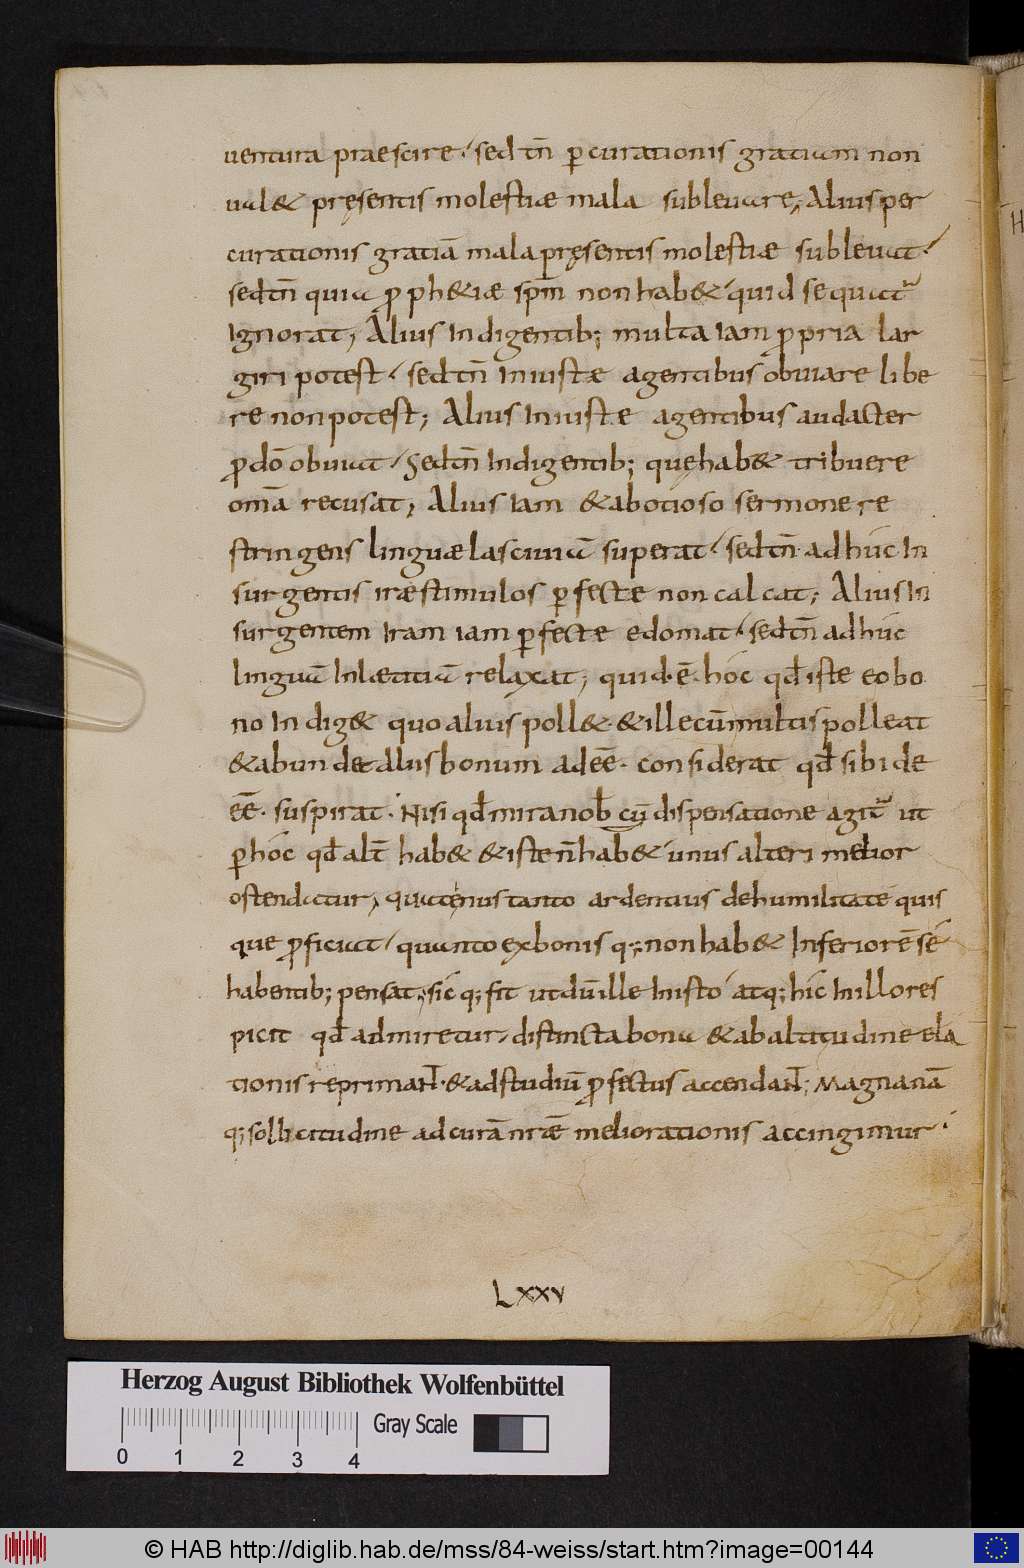 ventura praescire· sed tñ p̱ curationis gratiam non
ual& pręsentis molestiae mala subleuare, Alius per
curationis gratiā mala pręsentis molestiae subleuat·
sed tñ quia ꝓph&iae sp̄m non hab& quid sequat᷑
Ignorat, Alius Indigentib; multa Iam ꝓpria lar
giri potest· sed tñ Iniustae agentibus obuiare libe
re non potest; Alius Iniuste agentibus audacter
ꝓ dō obuiat· Sed tñ Indigentib; quę hab& tribuere
om̄a recusat, Alius Iam & ab otioso sermone re
stringens linguae lasciuiā superat· sed tñ adhuc In
surgentis irae stimulos ꝑfectae non calcat; Alius In
surgentem Iram iam ꝑfecte edomat· sed tñ adhuc
linguā In laetitiā relaxat, quid· ē hoc qđ iste eo bo
no Indig& quo alius poll&· & ille cū multis polleat
& abundet alius bonum adeē· considerat qđ sibi de
eē· suspirat· Nisi qđ mira nob̄ cū dispensatione agit᷑ ut
ꝑ hoc qđ alt̄ hab& & iste n̄ hab& unus alteri melior
ostendatur, quatenus tanto ardentius de humilitate quis
que ꝓficiat· quanto ex bonis q;; non hab& Inferiorē sé
habentib; pensat, sic q; fit ut dū ille In isto atq; hic In illo res
picit qđ admiretur, distincta bona & ab altitudine ela
tionis repriman̄t·& ad studiū ꝓfectus accendan̄t; Magna nā
q; sollicitudine ad curā nr̄ae meliorationis accingimur·
Lxxv
Herzog August Bibliothek Wolfenbüttel
Gray Scale
0 1 2 3 4
© HAB http://diglib.hab.de/mss/84-weiss/start.htm?image=00144